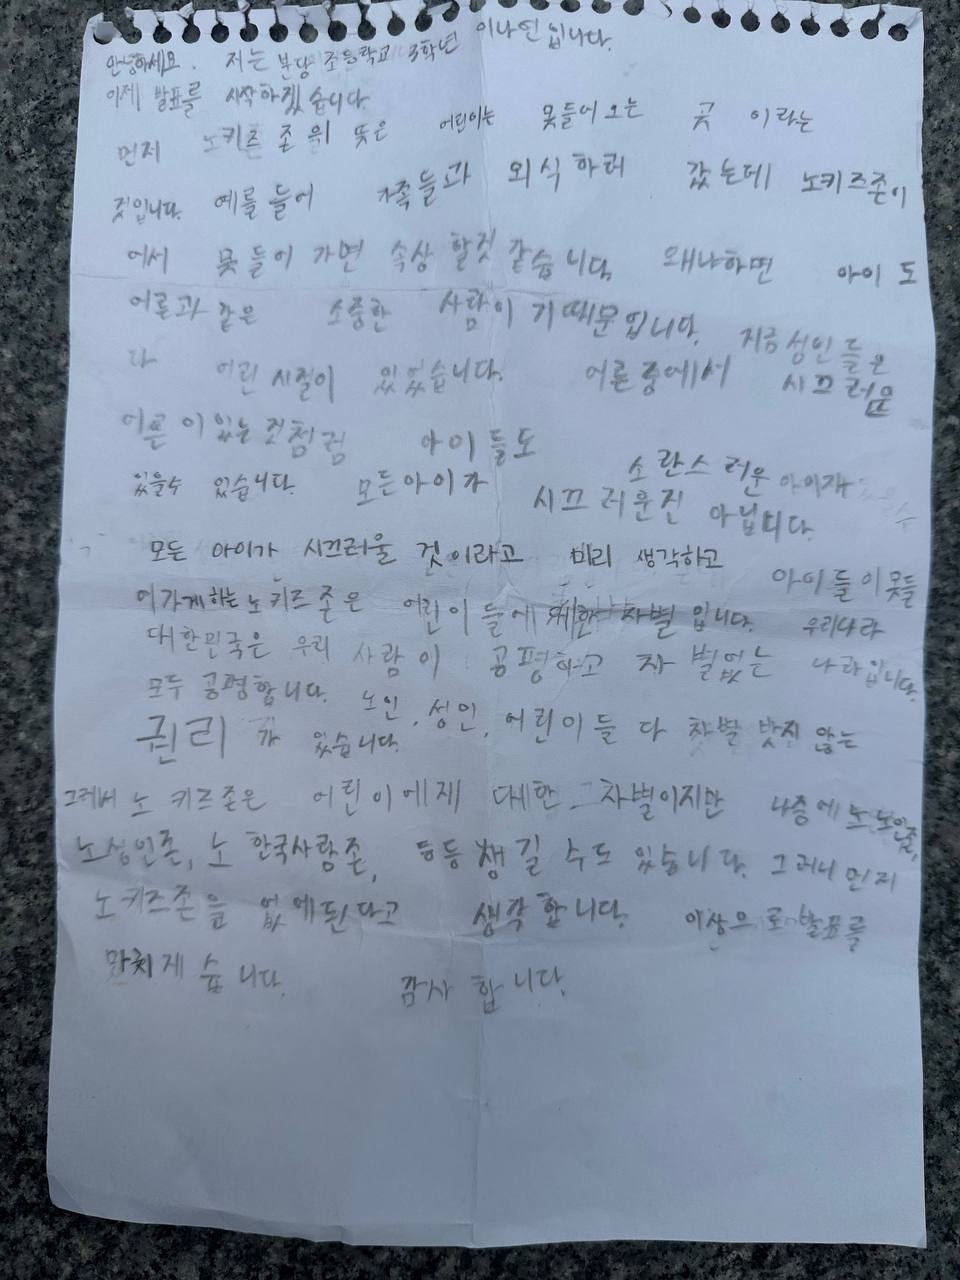 안녕하세요. 저는 분당 초등학교 3학년 이나연입니다.
이제 발표를 시작하겠습니다.
먼저 노키즈 존의 뜻은 어린이는 못들어 오는 곳 이라는
것입니다. 예를 들어 가족들과 외식하러 갔는데 노키즈존이
어서 못들어 가면 속상 할것 같습니다. 왜냐하면 아이도
어른과 같은 소중한 사람이기 때문입니다. 지금 성인들은
다 어린 시절이 있었습니다. 어른 중에서 시끄러운
어른이 있는 것첨럼 아이들도 소란스러운 아이가
있을수 있습니다. 모든아이가 시끄러운진 아닙니다.
모든 아이가 시끄러울 것이라고 미리 생각하고 아이들이 못들
어가게하는 노키즈존은 어린이들에 대한 차별입니다. 우리나라
대한민국은 우리 사람이 공평하고 차별없는 나라입니다.
모두 공평합니다. 노인, 성인, 어린이들 다 차별 받지 않는
권리가 있습니다.
그래서 노키즈존은 어린이에게 대한 차별이지만 나중에 노 노인존,
노성인존, 노 한국사람존, 등등 생길 수도 있습니다. 그러니 먼저
노키즈존을 없에된다고 생각합니다. 이상으로 발표를
마치게습니다. 감사합니다.